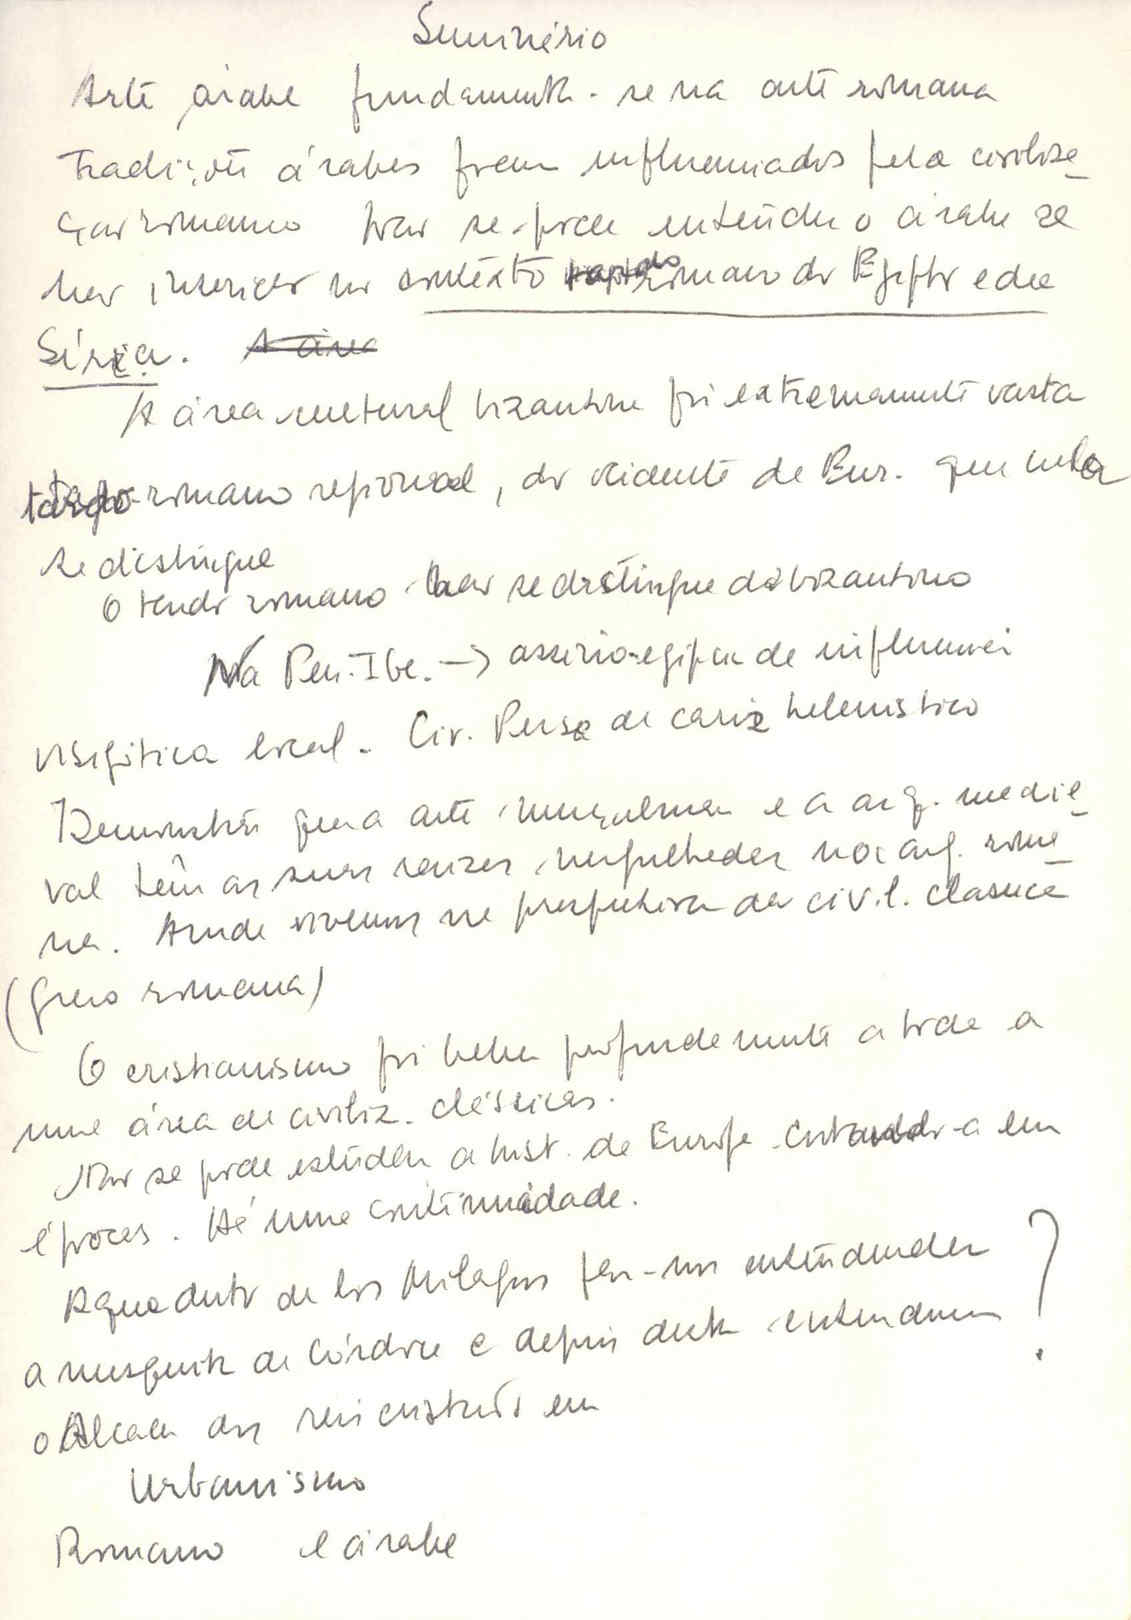 Seminário
Arte árabe fundamenta-se na arte romana
Tradições árabes foram influenciados pela civiliza
ção romano Não se pode entender o árabe se
não inserido no contexto romano do Egipto e da
Síria. A área
A área cultural bizantina foi extremamente vasta
tardo-romano regional, do ocidente da Eur. quem nela
se distingue
O tardo romano não se distingue do bizantino
Na Pen. Ibe. → assirio-egipcia de influencia
visigótica local. Civ. Persa de cariz helenistico
Demonstrar que a arte muçulmana e a arq. medie
val têm as suas raizes mergulhadas na arq. roma
na. Ainda vivemos na perspectiva da civil. classica
(Greco romana)
O cristianismo foi beber profundamente a toda a
uma área de civiliz. clássicas.
Não se pode estudar a hist. da Europa cortando-a em
épocas. Há uma continuidade.
Aqueduto de los Milagros faz-nos entender
a mesquita de Córdova e depois desta entendemos ?
o Alcacer dos reis cristãos em
Urbanismo
Romano e árabe